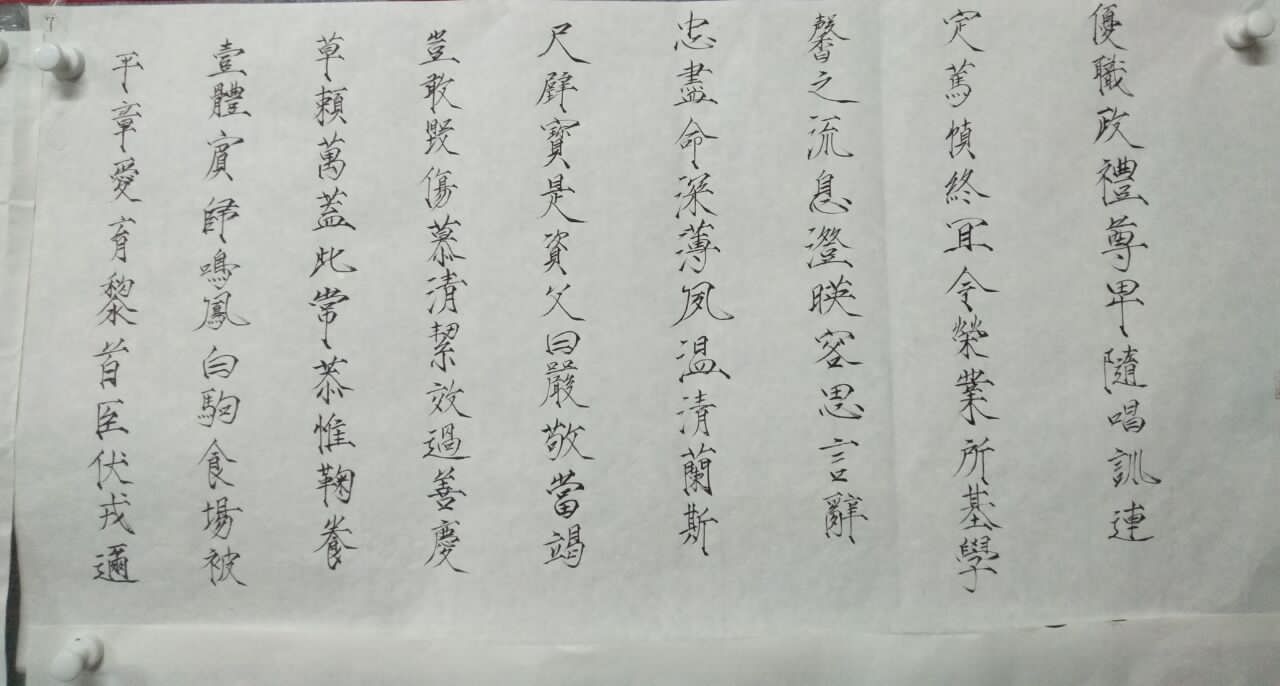 平章愛育黎首臣伏戎邇
壹體賓歸鳴鳳白駒食場被
草賴萬蓋此常恭惟鞠養
豈敢毀傷慕清絜效過善慶
尺璧寶是資父曰嚴敬當竭
忠盡命深薄夙温清蘭斯
馨之流息澄暎容思言辭
定篤慎終宜令榮業所基學
優職政禮尊卑隨唱訓連